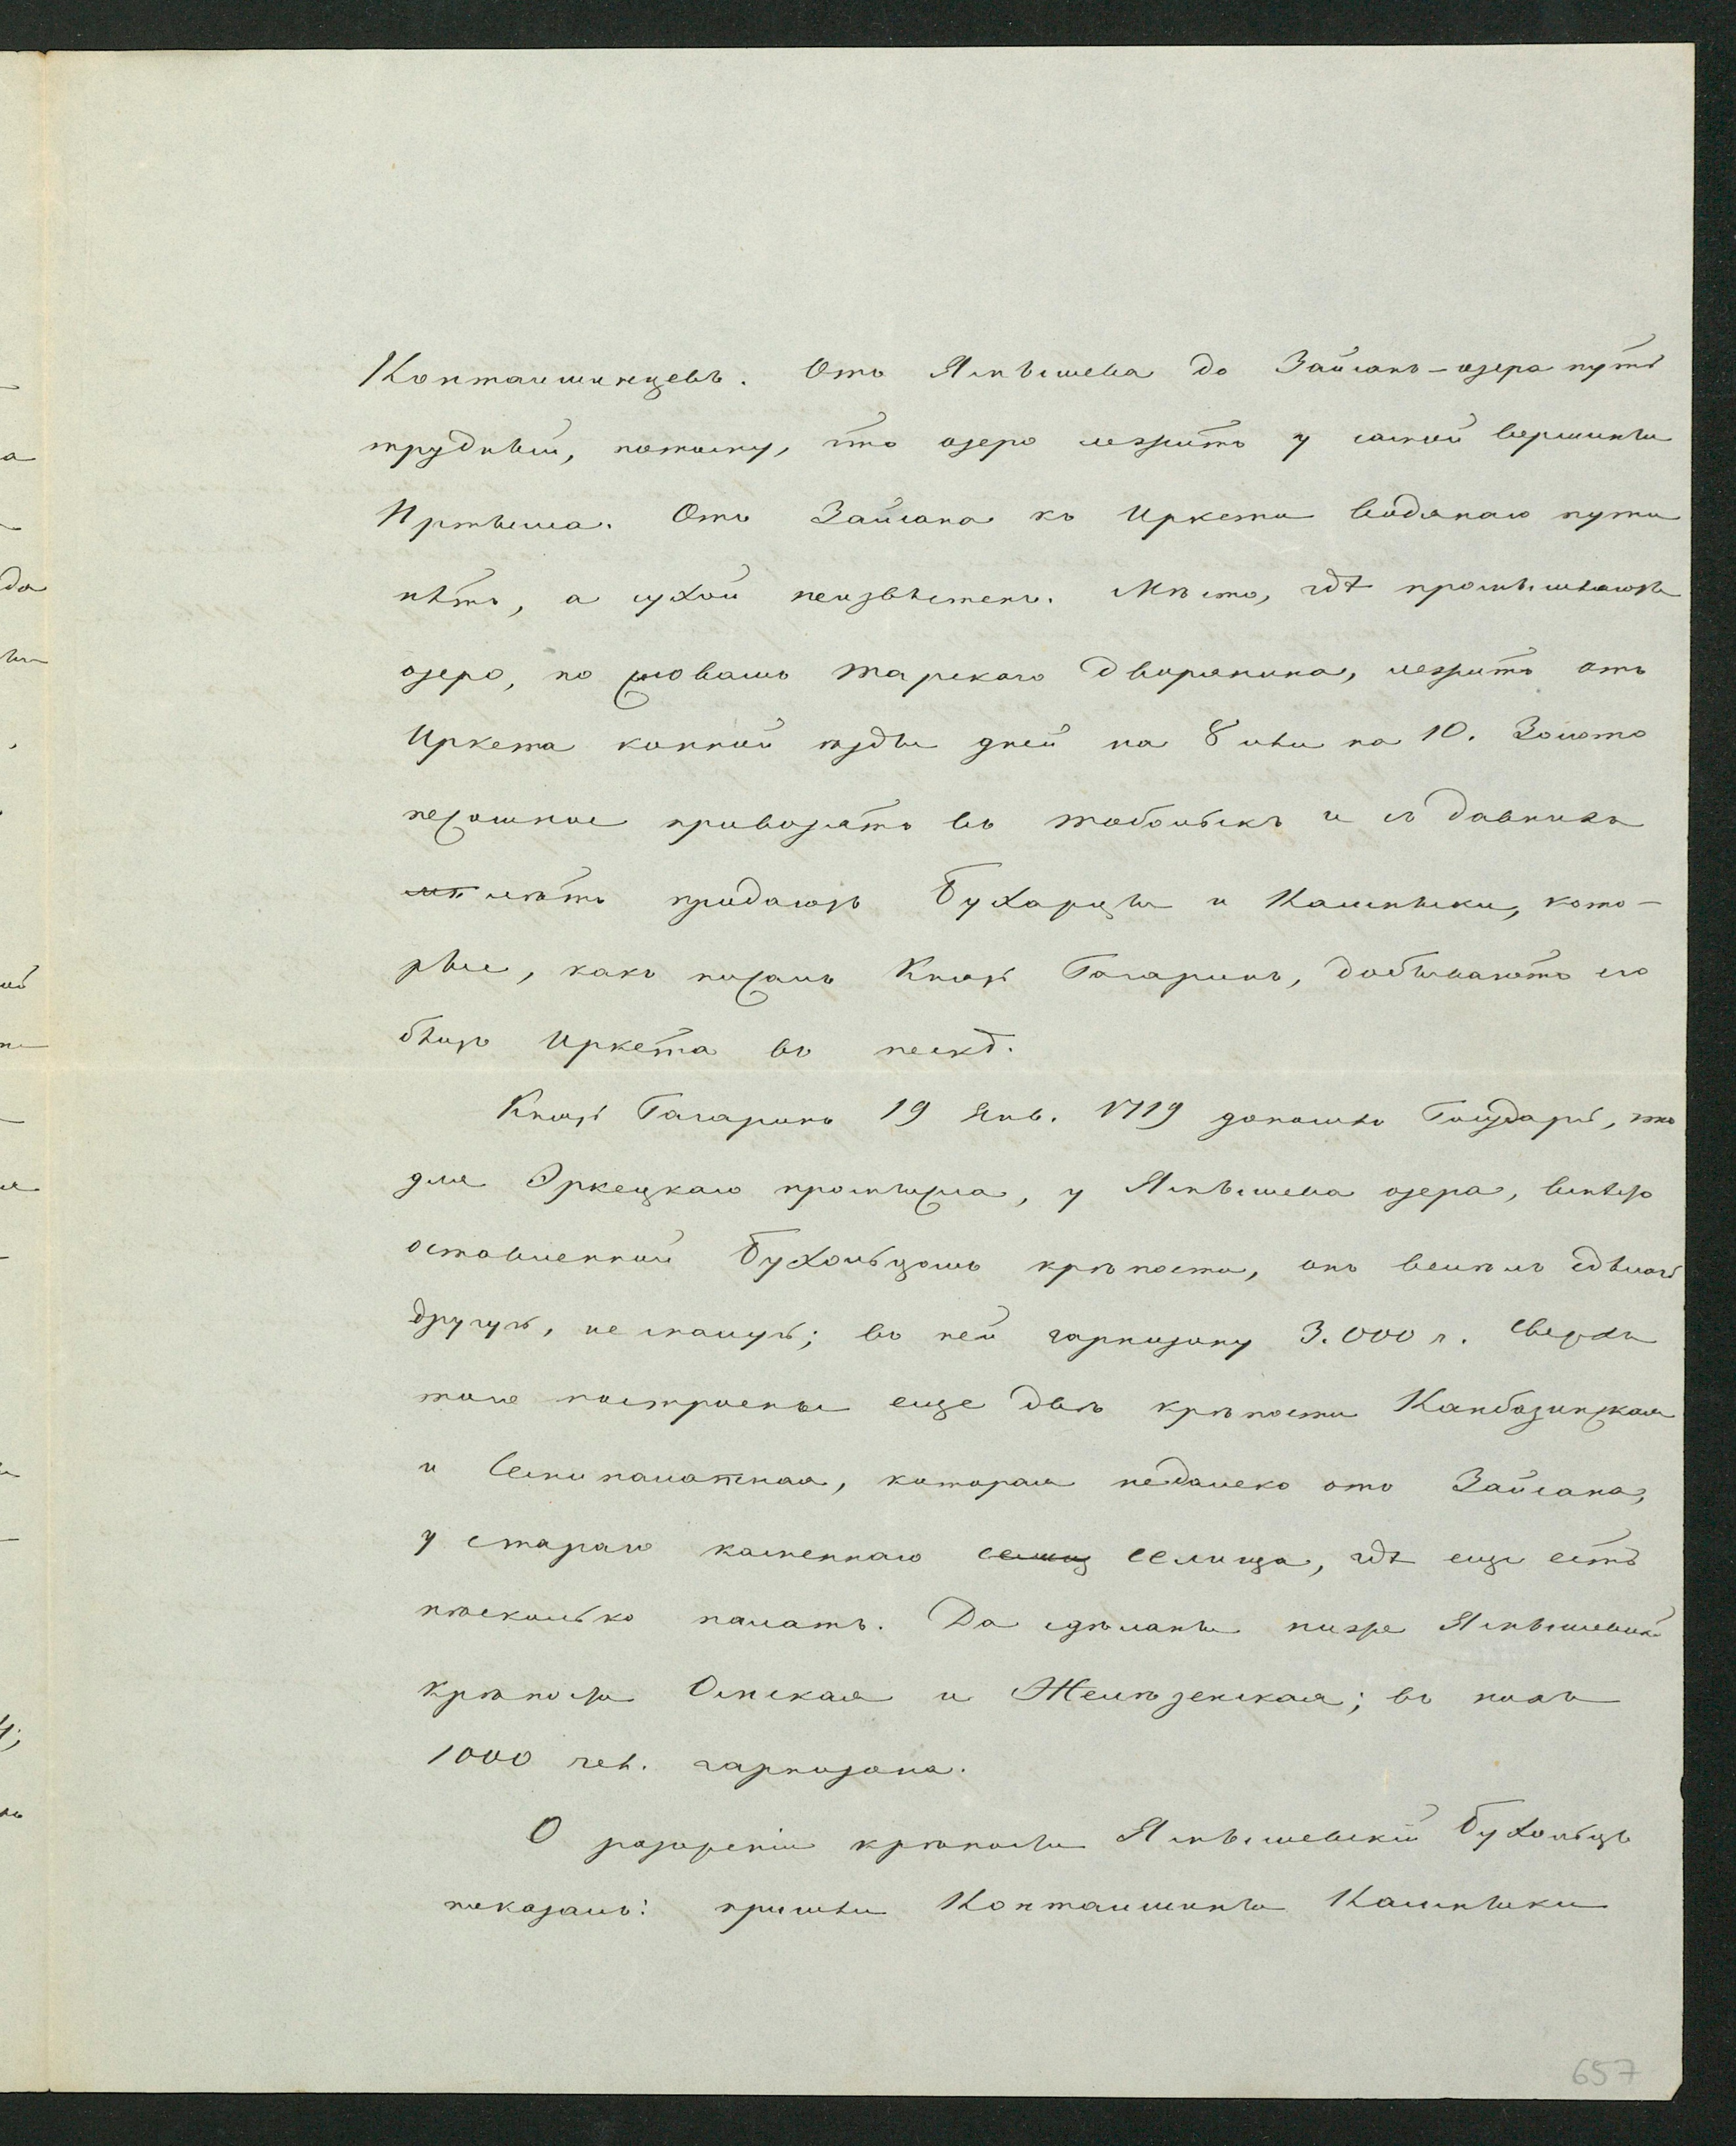 Контаишинцевъ. Отъ Ямышева до Зайсанъ-озера путь
трудный, потому, что озеро лежитъ у самой вершины
Иртыша. Отъ Зайсана къ Иркети водянаго пути
нѣтъ, а сухой неизвѣстенъ. Мѣсто, гдѣ промышляютъ
озеро, по словамъ Тарскаго дворянина, лежитъ отъ
Иркета конной ѣзды дней на 8 или на 10. Золото
песошное привозятъ въ Тобольскъ и съ давнихъ
лѣтъ продаютъ Бухарцы и Калмыки, кото-
рые, какъ писалъ Князь Гагаринъ, добываютъ его
близъ Иркета въ пескѣ.
Князь Гагаринъ 19 Янв. 1719 доносилъ Государю, что
для Эркецкаго промысла, у Ямышева озера, вмѣсто
оставленной Бухольцомъ крѣпости, онъ велѣлъ сдѣлать
другую, не малую; въ ней гарнизону 3.000 ч. Сверхъ
того построены еще двѣ крѣпости Канбазинская
и Семипалатная, которая недалеко отъ Зайсана,
у стараго каменнаго селища, гдѣ еще есть
нѣсколько палатъ. Да сдѣланы ниже Ямышевской
крѣпости Омская и Желѣзенская; въ нихъ
1000 чел. гарнизона.
О разореніи крѣпости Ямышевской Бухольцъ
показалъ: пришли Контаишины Калмыки
657